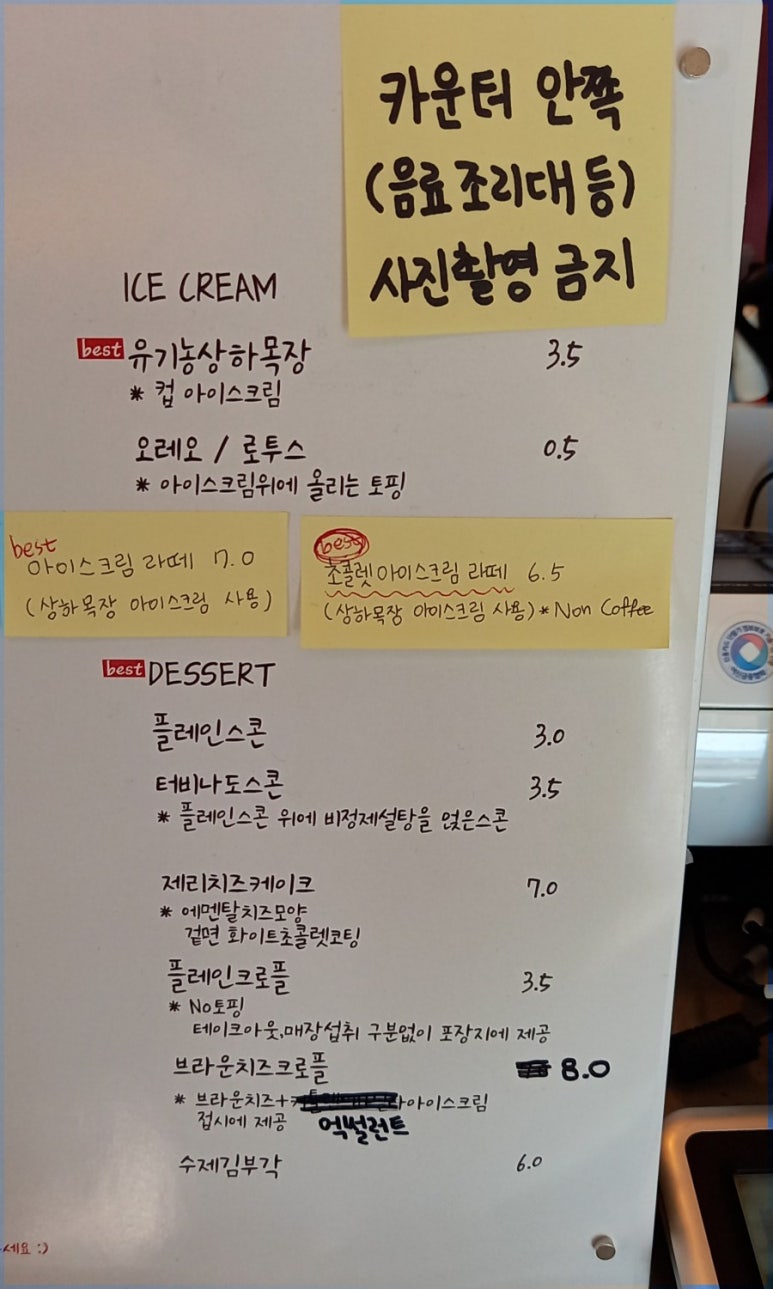 카운터 안쪽
(음료조리대 등)
사진촬영 금지
ICE CREAM
best 유기농상하목장 3.5
* 컵 아이스크림
오레오 / 로투스 0.5
* 아이스크림위에 올리는 토핑
best
아이스크림 라떼 7.0
(상하목장 아이스크림 사용)
best
초콜렛아이스크림 라떼 6.5
(상하목장 아이스크림 사용) * Non Coffee
best DESSERT
플레인스콘 3.0
터비나도스콘 3.5
* 플레인스콘 위에 비정제설탕을 얹은스콘
제리치즈케이크 7.0
* 에멘탈치즈모양
겉면 화이트초콜렛코팅
플레인크로플 3.5
* No토핑
테이크아웃,매장섭취 구분없이 포장지에 제공
브라운치즈크로플 8.0
* 브라운치즈+아이스크림
접시에 제공 엑썰런트
수제김부각 6.0
세요 :)